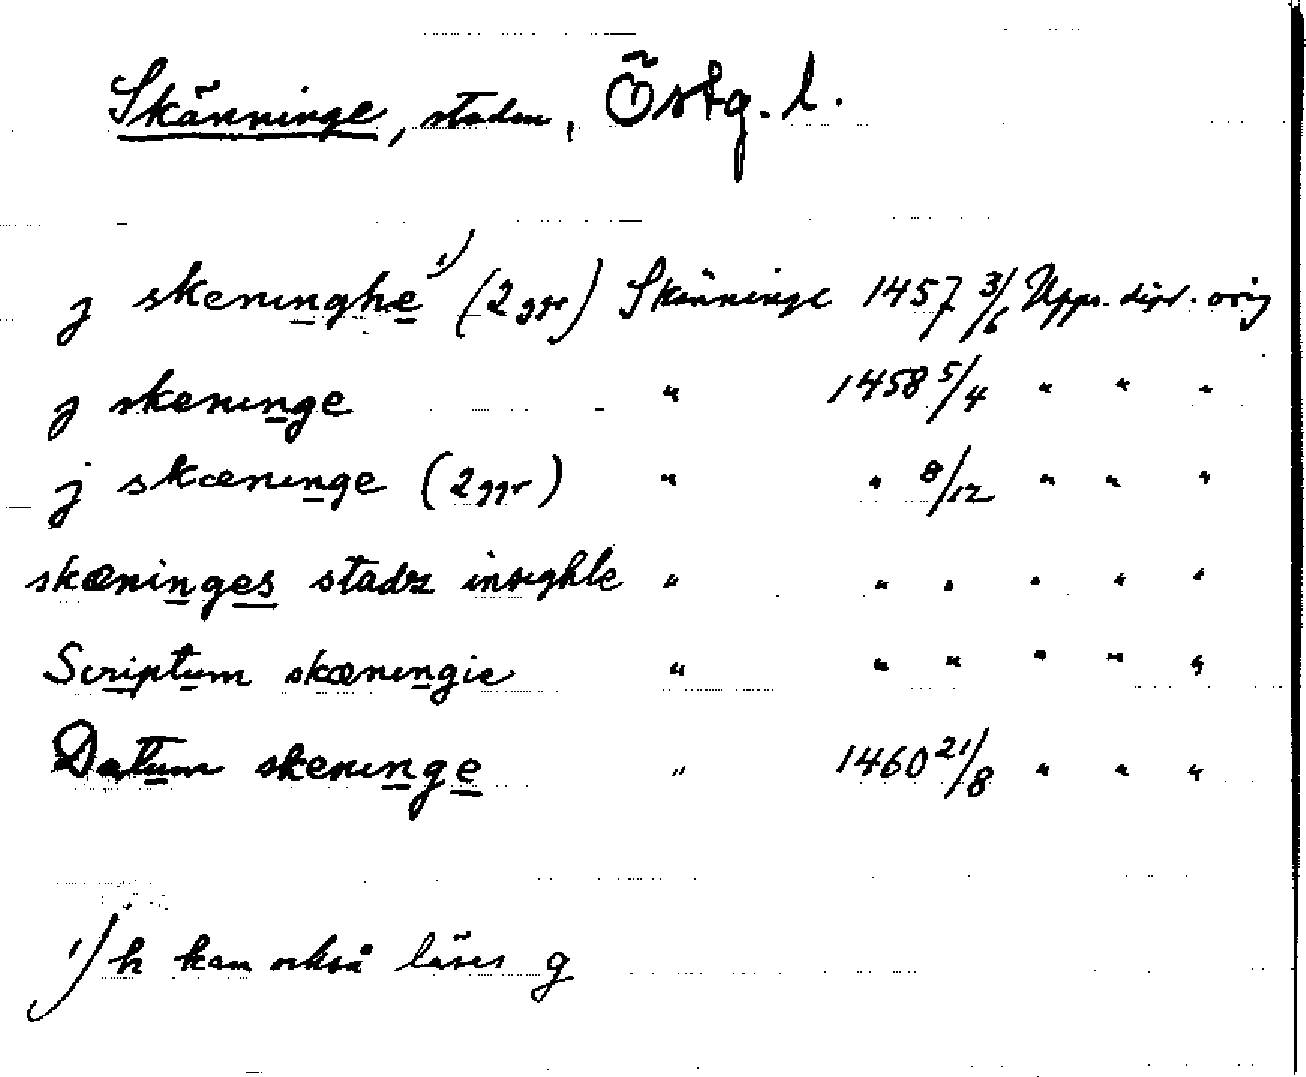 Skänninge, staden, Östg. l.
j skeninghe 1) (2 ggr) Skänninge 1457 3/6 Upps. dipl. orig
j skeninge " 1458 5/4 " " "
j skæninge (2 ggr) " " 8/12 " " "
skæninges stadz insighle " " " " " "
Scriptum skæningie " " " " " "
Datum skeninge " 1460 21/8 " " "
1) h kan också läses g